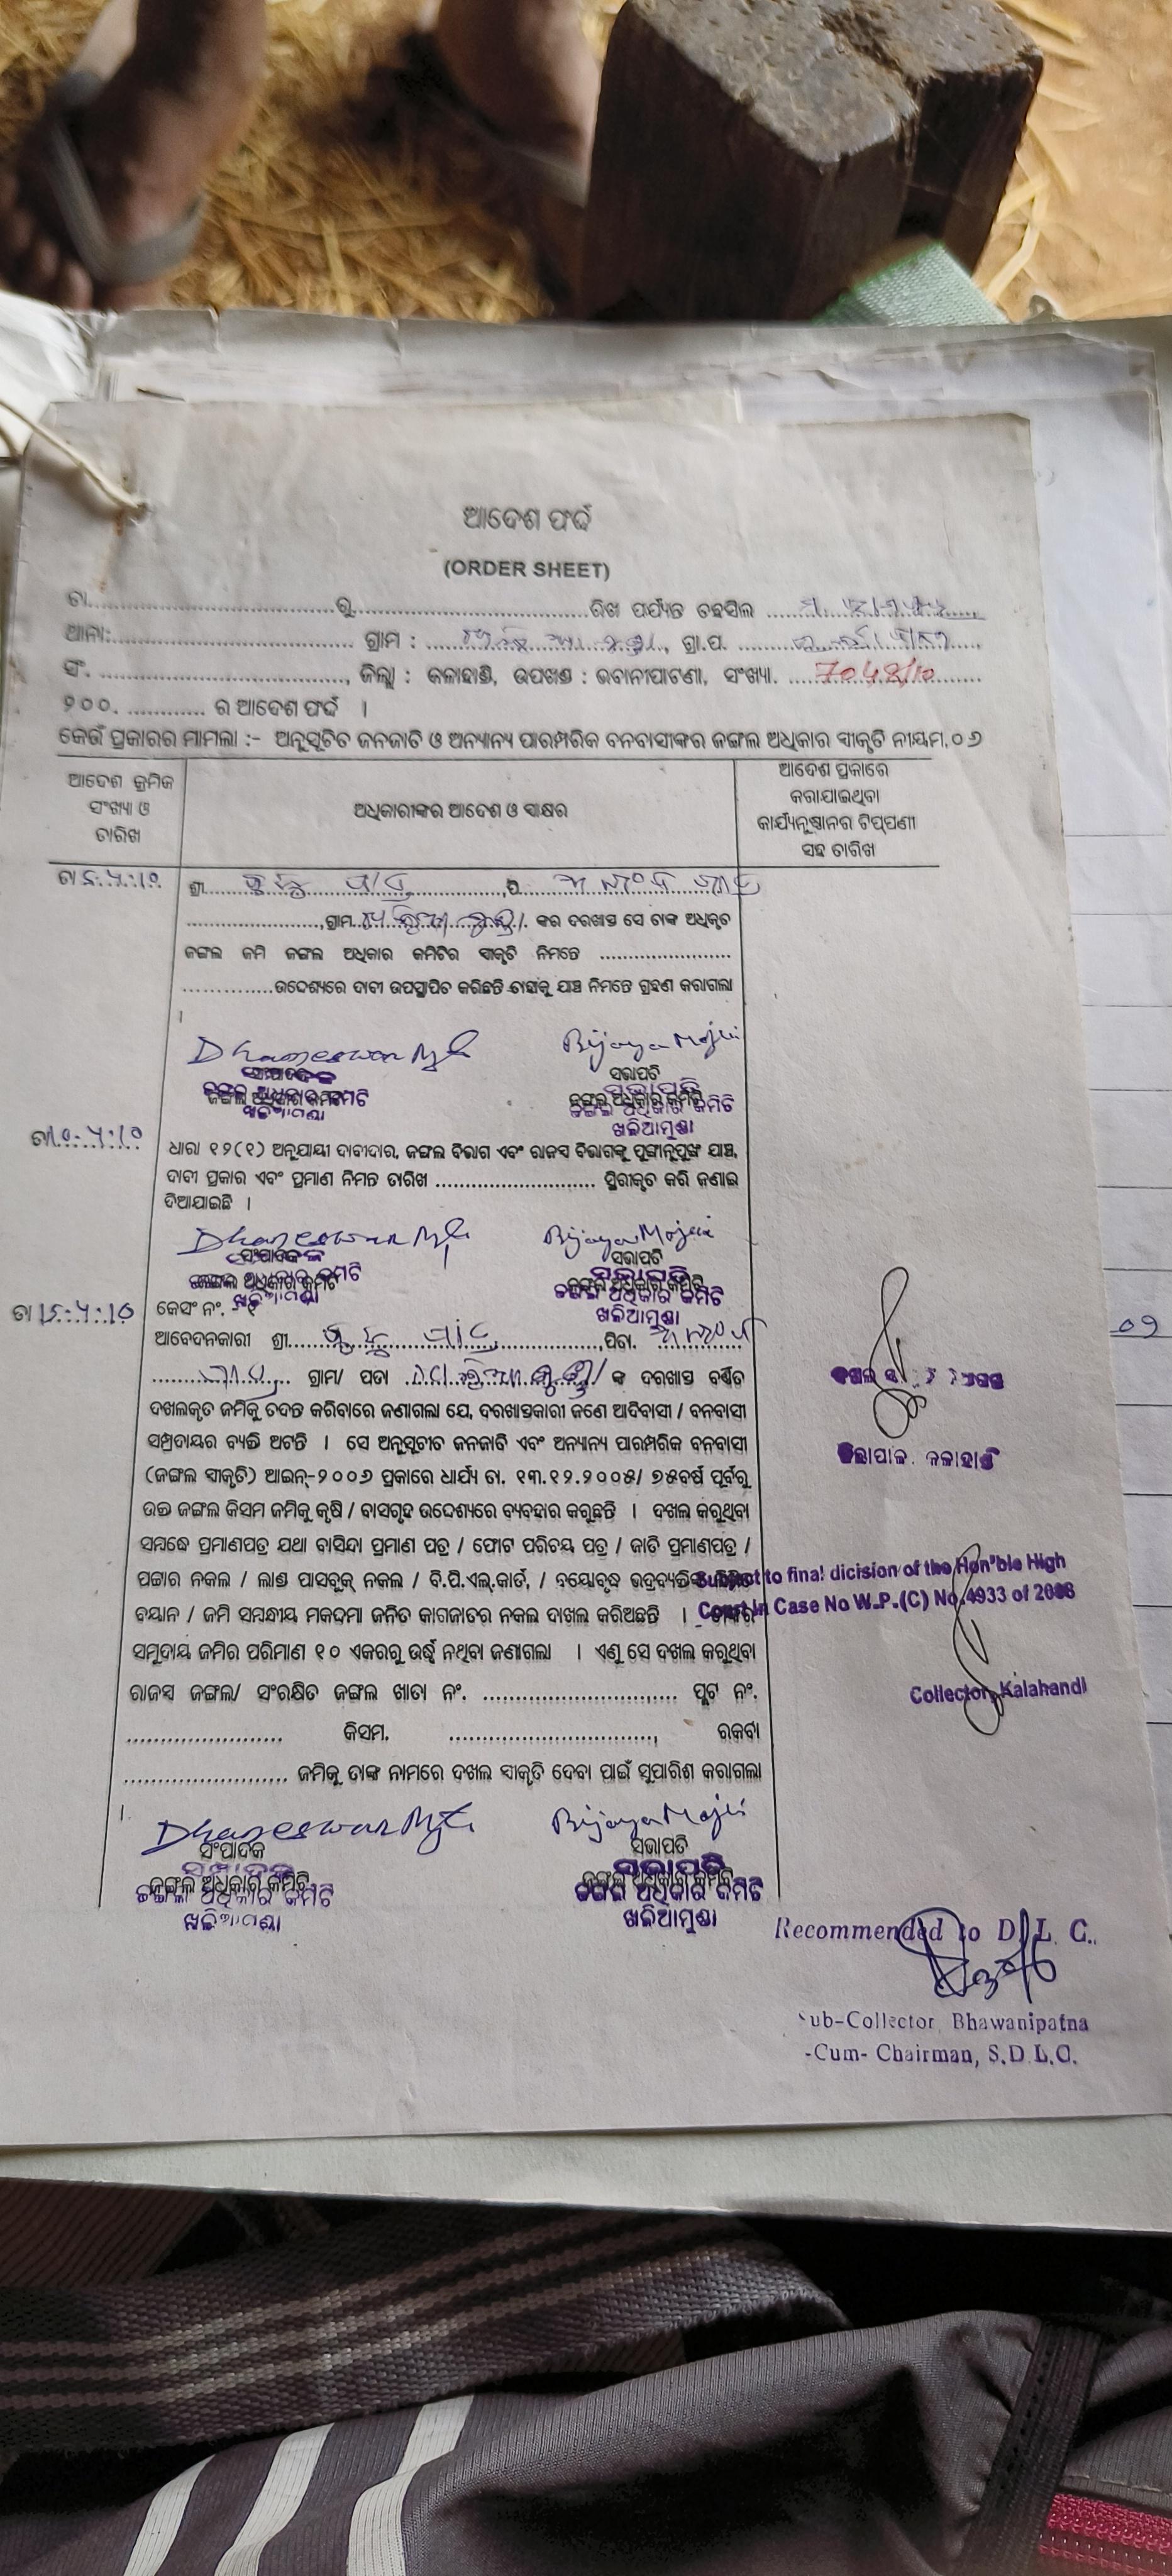 ଆଦେଶ ଫର୍ଦ୍ଦ
(ORDER SHEET)
ତା..............................ରୁ..............................ରିଖ ପର୍ଯ୍ୟନ୍ତ ତହସିଲ
ଥାନା:.............................. ଗ୍ରାମ : .............................., ଗ୍ରା.ପ.
ସଂ. .............................., ଜିଲ୍ଲା : କଳାହାଣ୍ଡି, ଉପଖଣ୍ଡ : ଭବାନୀପାଟଣା, ସଂଖ୍ୟା. 7048/10
୨୦୦. ............ ର ଆଦେଶ ଫର୍ଦ୍ଦ ।
କେଉଁ ପ୍ରକାରର ମାମଲା :- ଅନୁସୂଚିତ ଜନଜାତି ଓ ଅନ୍ୟାନ୍ୟ ପାରମ୍ପରିକ ବନବାସୀଙ୍କର ଜଙ୍ଗଲ ଅଧିକାର ସ୍ୱୀକୃତି ନୀୟମ,୦୬
ଆଦେଶ କ୍ରମିକ
ସଂଖ୍ୟା ଓ
ତାରିଖ
ଅଧିକାରୀଙ୍କର ଆଦେଶ ଓ ସ୍ୱାକ୍ଷର
ଆଦେଶ ପ୍ରକାରେ
କରାଯାଇଥିବା
କାର୍ଯ୍ୟାନୁଷ୍ଠାନର ଟିପ୍ପଣୀ
ସହ ତାରିଖ
ଶ୍ରୀ..............................,ପି
..................,ଗ୍ରାମ.................. ଙ୍କର ଦରଖାସ୍ତ ସେ ତାଙ୍କ ଅଧିକୃତ
ଜଙ୍ଗଲ ଜମି ଜଙ୍ଗଲ ଅଧିକାର କମିଟିର ସ୍ୱୀକୃତି ନିମନ୍ତେ ..................
..............ଉଦ୍ଦେଶ୍ୟରେ ଦାବୀ ଉପସ୍ଥାପିତ କରିଛନ୍ତି ତାହାକୁ ଯାଞ୍ଚ ନିମନ୍ତେ ଗ୍ରହଣ କରାଗଲା
।
Dhaneswar Bijaya Majhi
ସଂପାଦକ ସଭାପତି
ଜଙ୍ଗଲ ଅଧିକାର କମିଟି ଜଙ୍ଗଲ ଅଧିକାର କମିଟି
ଖଳିଆମୁଣ୍ଡା ଖଳିଆମୁଣ୍ଡା
ଧାରା ୧୨(୧) ଅନୁଯାୟୀ ଦାବୀଦାର, ଜଙ୍ଗଲ ବିଭାଗ ଏବଂ ରାଜସ୍ୱ ବିଭାଗଙ୍କୁ ପୁଙ୍ଖାନୁପୁଙ୍ଖ ଯାଞ୍ଚ,
ଦାବୀ ପ୍ରକାର ଏବଂ ପ୍ରମାଣ ନିମନ୍ତ ତାରିଖ .............................. ସ୍ଥିରୀକୃତ କରି ଜଣାଇ
ଦିଆଯାଇଛି ।
Dhaneswar Bijaya Majhi
ସଂପାଦକ ସଭାପତି
ଜଙ୍ଗଲ ଅଧିକାର କମିଟି ଜଙ୍ଗଲ ଅଧିକାର କମିଟି
ଖଳିଆମୁଣ୍ଡା ଖଳିଆମୁଣ୍ଡା
କେସଂ ନଂ. - ୧
ଆବେଦନକାରୀ ଶ୍ରୀ..............................,ପିତା.
.................. ଗ୍ରାମ/ ପଡା .................. ଙ୍କ ଦରଖାସ୍ତ ବର୍ଣ୍ଣିତ
ଦଖଲକୃତ ଜମିକୁ ତଦନ୍ତ କରିବାରେ ଜଣାଗଲା ଯେ, ଦରଖାସ୍ତକାରୀ ଜଣେ ଆଦିବାସୀ / ବନବାସୀ
ସମ୍ପ୍ରଦାୟର ବ୍ୟକ୍ତି ଅଟନ୍ତି । ସେ ଅନୁସୂଚୀତ ଜନଜାତି ଏବଂ ଅନ୍ୟାନ୍ୟ ପାରମ୍ପରିକ ବନବାସୀ
(ଜଙ୍ଗଲ ସ୍ୱୀକୃତି) ଆଇନ୍-୨୦୦୬ ପ୍ରକାରେ ଧାର୍ଯ୍ୟ ତା. ୧୩.୧୨.୨୦୦୫/ ୭୫ବର୍ଷ ପୂର୍ବରୁ
ଉକ୍ତ ଜଙ୍ଗଲ କିସମ ଜମିକୁ କୃଷି / ବାସଗୃହ ଉଦ୍ଦେଶ୍ୟରେ ବ୍ୟବହାର କରୁଛନ୍ତି । ଦଖଲ କରୁଥିବା
ସମ୍ବନ୍ଧେ ପ୍ରମାଣପତ୍ର ଯଥା ବାସିନ୍ଦା ପ୍ରମାଣ ପତ୍ର / ଫୋଟ ପରିଚୟ ପତ୍ର / ଜାତି ପ୍ରମାଣପତ୍ର /
ପଟ୍ଟାର ନକଲ / ଲାଣ୍ଡ ପାସବୁକ୍ ନକଲ / ବି.ପି.ଏଲ୍.କାର୍ଡ, / ବୟୋବୃଦ୍ଧ ଭଦ୍ରବ୍ୟକ୍ତିଙ୍କ
ବୟାନ / ଜମି ସମ୍ବନ୍ଧୀୟ ମକଦ୍ଦମା ଜନିତ କାଗଜାତର ନକଲ ଦାଖଲ କରିଅଛନ୍ତି ।
ସମୁଦାୟ ଜମିର ପରିମାଣ ୧୦ ଏକରରୁ ଉର୍ଦ୍ଧ୍ୱ ନଥିବା ଜଣାଗଲା । ଏଣୁ ସେ ଦଖଲ କରୁଥିବା
ରାଜସ୍ୱ ଜଙ୍ଗଲ/ ସଂରକ୍ଷିତ ଜଙ୍ଗଲ ଖାତା ନଂ. .............................. ପ୍ଲଟ ନଂ.
........................ କିସମ. .............................., ରକବା
........................ ଜମିକୁ ତାଙ୍କ ନାମରେ ଦଖଲ ସ୍ୱୀକୃତି ଦେବା ପାଇଁ ସୁପାରିଶ କରାଗଲା
।
Subject to final dicision of the Hon'ble High
Court in Case No W.P.(C) No.4933 of 2008
Collector, Kalahandi
Dhaneswar Bijaya Majhi
ସଂପାଦକ ସଭାପତି
ଜଙ୍ଗଲ ଅଧିକାର କମିଟି ଜଙ୍ଗଲ ଅଧିକାର କମିଟି
ଖଳିଆମୁଣ୍ଡା ଖଳିଆମୁଣ୍ଡା
Recommended to D. L. C.
Sub-Collector, Bhawanipatna
-Cum- Chairman, S.D.L.C.